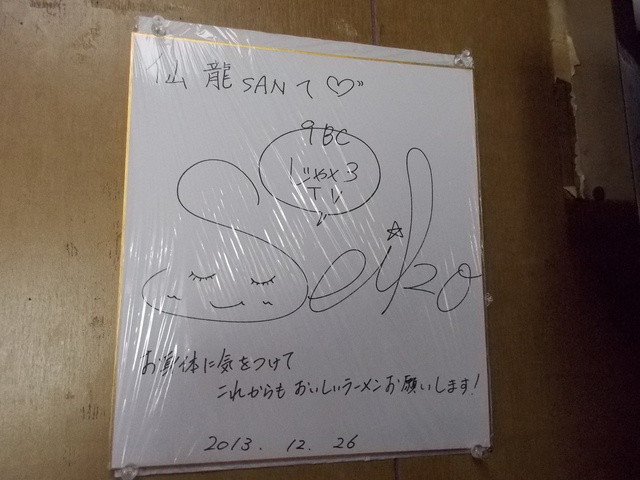 仙龍SANへ♡"
9BC
じゃんヨ
TV
Seiko
お身体に気をつけて
これからもおいしいラーメンお願いします!
2013. 12. 26